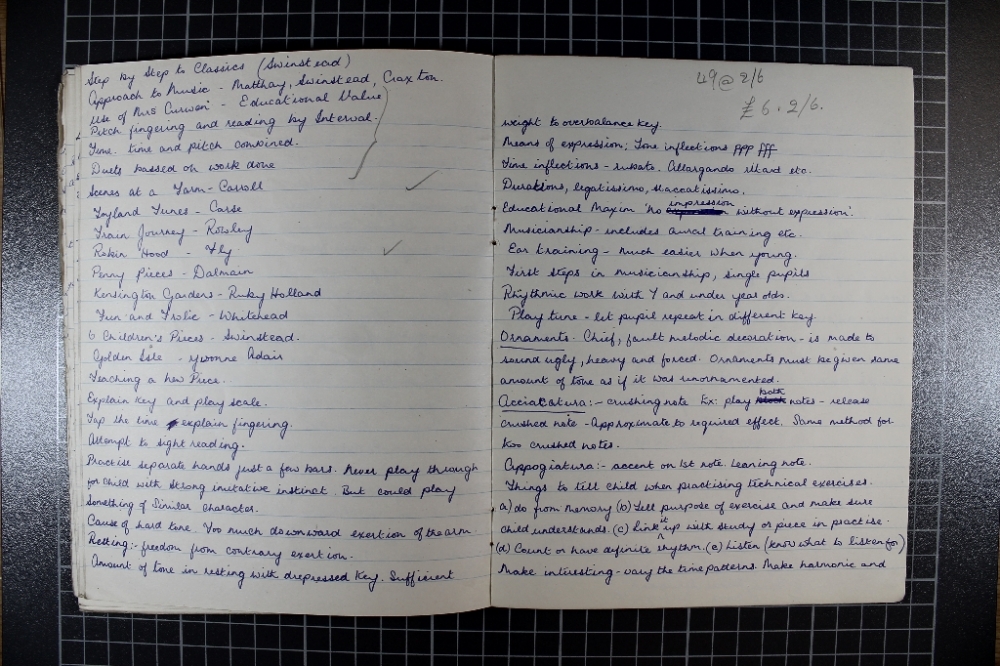 Step by Step to Classics (Swinstead)
Approach to Music - Matthay, Swinstead, Craxton.
Use of Mrs Curwen - Educational Value
Pitch fingering and reading by Interval.
Time. time and pitch combined.
Duets bassed on work done
Scenes at a Farm - Carroll
Toyland Tunes - Carse
Train Journey - Rowley
Robin Hood - Fly
Penny Pieces - Dalmain
Kensington Gardens - Ruby Holland
Fun and Frolic - Whitehead
6 Children's Pieces - Swinstead.
Golden Isle - Yvonne Adair
Teaching a New Piece.
Explain key and play scale.
Tap the time explain fingering.
Attempt to sight reading.
Practise separate hands just a few bars. Never play through
for child with strong imitative instinct. But could play
Something of Similar character.
Cause of hard tone. Too much downward exertion of the arm
Resting:- freedom from contrary exertion.
Amount of tone in resting with drepressed key. Sufficient
49 @ 2/6
£6 . 2/6.
weight to overbalance key.
Means of expression; Tone inflections ppp fff
Time inflections - rubato. Allargando ritard etc.
Durations, legatissimo, staccatissimo.
Educational Maxim 'no impression without expression'.
Musicianship - includes aural training etc.
Ear training - much easier when young.
First steps in musicianship, single pupils
Rhythmic work with 7 and under year olds.
Play tune - let pupil repeat in different key.
Ornaments. Chief, fault melodic decoration - is made to
sound ugly, heavy and forced. Ornaments must be given same
amount of tone as if it was unornamented.
Acciacatura:- crushing note Ex: play both notes - release
crushed note - Approximate to required effect. Same method for
two crushed notes.
Appogiatura:- accent on 1st note. Leaning note.
Things to tell child when practising technical exercises.
a) do from memory (b) Tell purpose of exercise and make sure
child understands. (c) Link it up with study or piece in practise.
(d) Count or have definite rhythm. (e) Listen (know what to listen for)
Make interesting - vary the time patterns. Make harmonic and